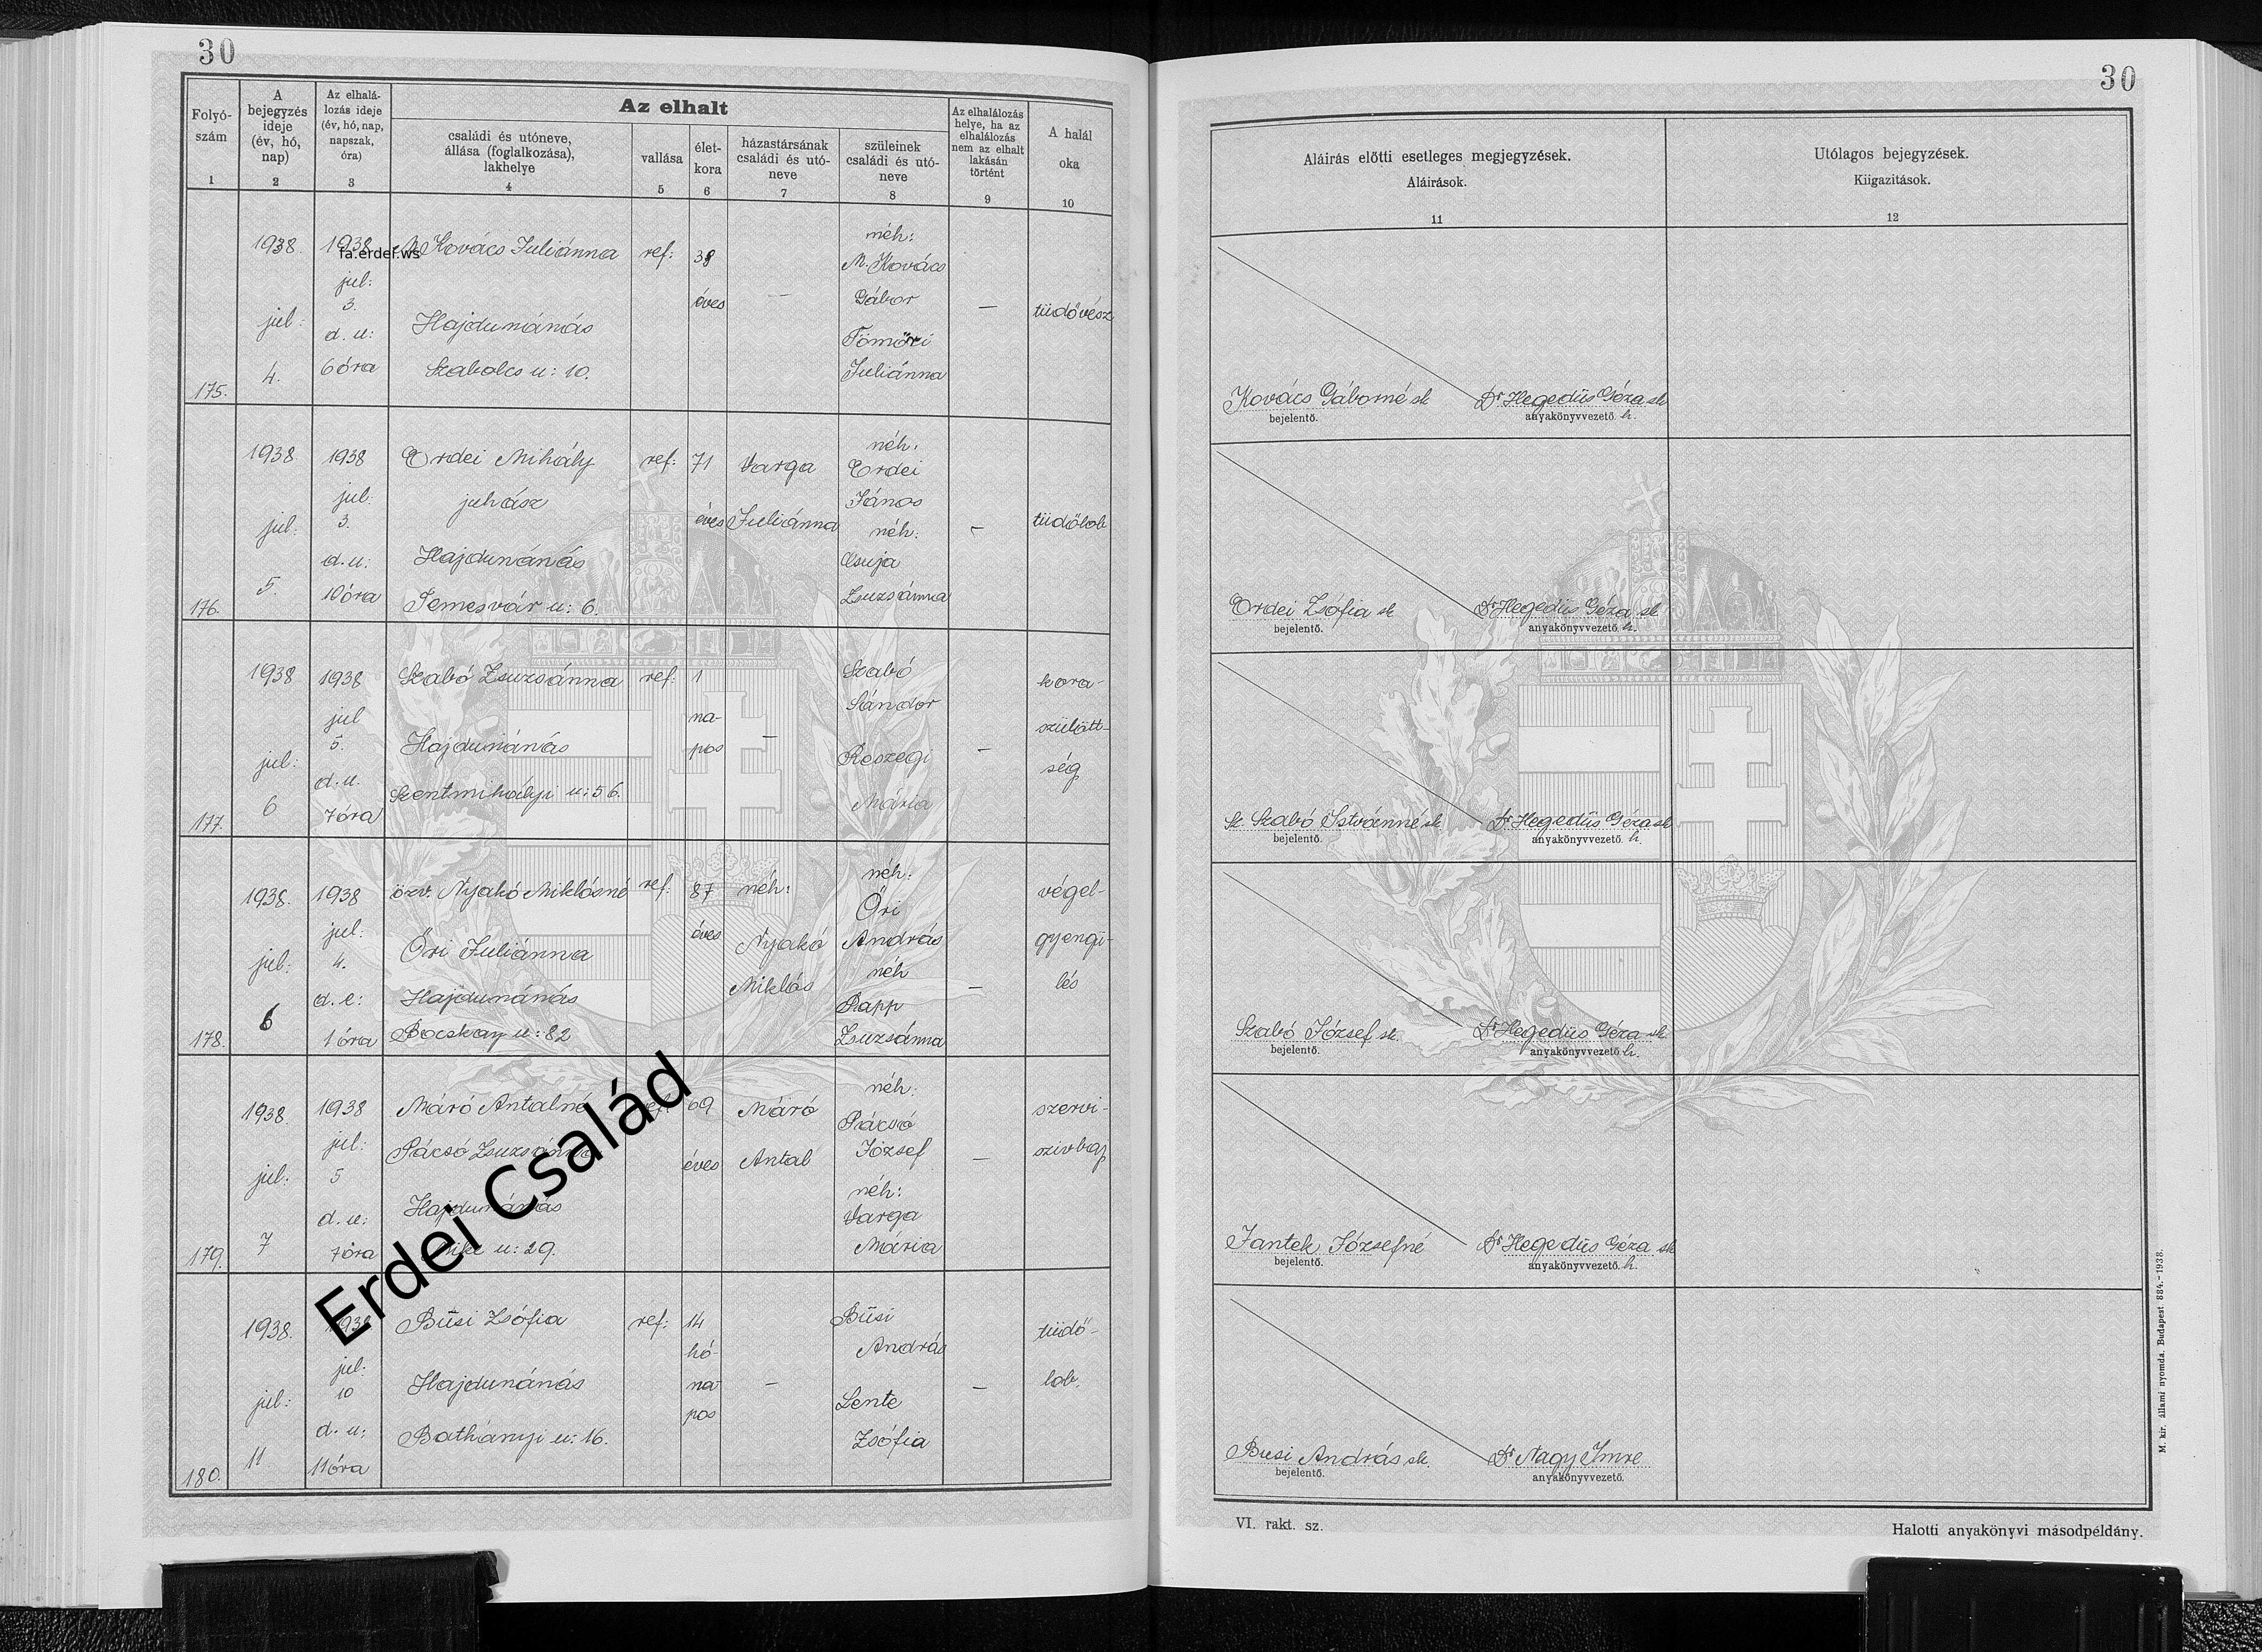 30
Folyó-
szám
1
A
bejegyzés
ideje
(év, hó,
nap)
2
Az elhalá-
lozás ideje
(év, hó, nap,
napszak,
óra)
3
Az elhalt
családi és utóneve,
állása (foglalkozása),
lakhelye
4
vallása
5
élet-
kora
6
házastársának
családi és utó-
neve
7
szüleinek
családi és utó-
neve
8
Az elhalálozás
helye, ha az
elhalálozás
nem az elhalt
lakásán
történt
9
A halál
oka
10
175.
1938.
jul:
4.
1938
jul:
3.
d. u:
6 óra
fa.erdei.ws
M. Kovács Juliánna
Hajdunánás
Szabolcs u: 10.
ref:
éves
—
néh:
M. Kovács
Gábor
Tömöri
Juliánna
—
tüdővész
176.
1938
jul:
5.
1938
jul:
3.
d. u:
10 óra
Erdei Mihály
juhász
Hajdunánás
Temesvár u: 6.
ref:
71
éves
Varga
Juliánna
néh:
Erdei
János
néh:
Csuja
Zsuzsánna
—
tüdőlob
177.
1938
jul:
6
1938
jul
5.
d. u.
7 óra
Szabó Zsuzsánna
Hajdunánás
Szentmihályi u: 56.
ref:
1
na-
pos
—
Szabó
Sándor
Reszegi
Mária
—
kora-
szülött-
ség
178.
1938.
jul:
6
1938
jul:
4.
d. e:
1 óra
özv. Nyakó Miklósné
Őri Juliánna
Hajdunánás
Bocskay u: 82
ref:
87
éves
néh:
Nyakó
Miklós
néh:
Őri
András
néh
Papp
Zsuzsánna
—
végel-
gyengü-
lés
179.
1938.
jul:
7
1938
jul:
5
d. u:
7 óra
Máró Antalné
Pácsó Zsuzsánna
Hajdunánás
u: 29.
69
éves
Máró
Antal
néh:
Pácsó
József
néh:
Varga
Mária
—
szervi-
szivbaj
180.
1938.
jul:
11.
1938
jul:
10
d. u:
11 óra
Büsi Zsófia
Hajdunánás
Bathányi u: 16.
ref:
14
hó-
na-
pos
—
Büsi
András
Lente
Zsófia
—
tüdő-
lob.
Erdei Család
30
Aláirás előtti esetleges megjegyzések.
Aláirások.
11
Utólagos bejegyzések.
Kiigazitások.
12
Kovács Gáborné sk
bejelentő.
Dr Hegedüs Géza sk
anyakönyvvezető. h.
Erdei Zsófia sk
bejelentő.
Dr Hegedüs Géza sk
anyakönyvvezető. h.
Sz. Szabó Istvánné sk
bejelentő.
Dr Hegedüs Géza sk
anyakönyvvezető. h.
Szabó József sk.
bejelentő.
Dr Hegedüs Géza sk
anyakönyvvezető. h.
Jantek Józsefné
bejelentő.
Dr Hegedüs Géza sk
anyakönyvvezető. h.
Busi András sk.
bejelentő.
Dr Nagy Imre
anyakönyvvezető.
VI. rakt. sz.
Halotti anyakönyvi másodpéldány.
M. kir. állami nyomda. Budapest. 884.-1938.